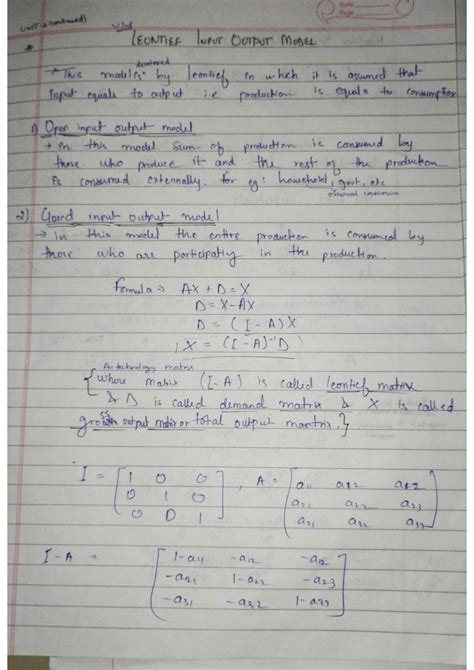 Date
Page
Unit-2 (continued)
V. Imp
* LEONTIEF INPUT OUTPUT MODEL
developed
→ This model is by leontief in which it is assumed that
input equals to output i.e production is equals to consumption
1) Open input output model
→ in this model sum of production is consumed by
those who produce it and the rest of the production
is consumed externally. for eg: household, govt, etc
external consumers
2) Closed input output model
→ in this model the entire production is consumed by
those who are participating in the production.
Formula ⇒ AX + D = X
D = X - AX
D = (I - A) X
X = (I - A)⁻¹ D
A= technology matrix
{ where matrix (I-A) is called leontief matrix
& D is called demand matrix & X is called
gross output matrix or total output matrix. }
I = [ 1 0 0 , A = [ a11 a12 a12
0 1 0 a21 a22 a23
0 0 1 ] a31 a32 a33 ]
I-A = [ 1-a11 -a12 -a12
-a21 1-a22 -a23
-a31 -a32 1-a33 ]